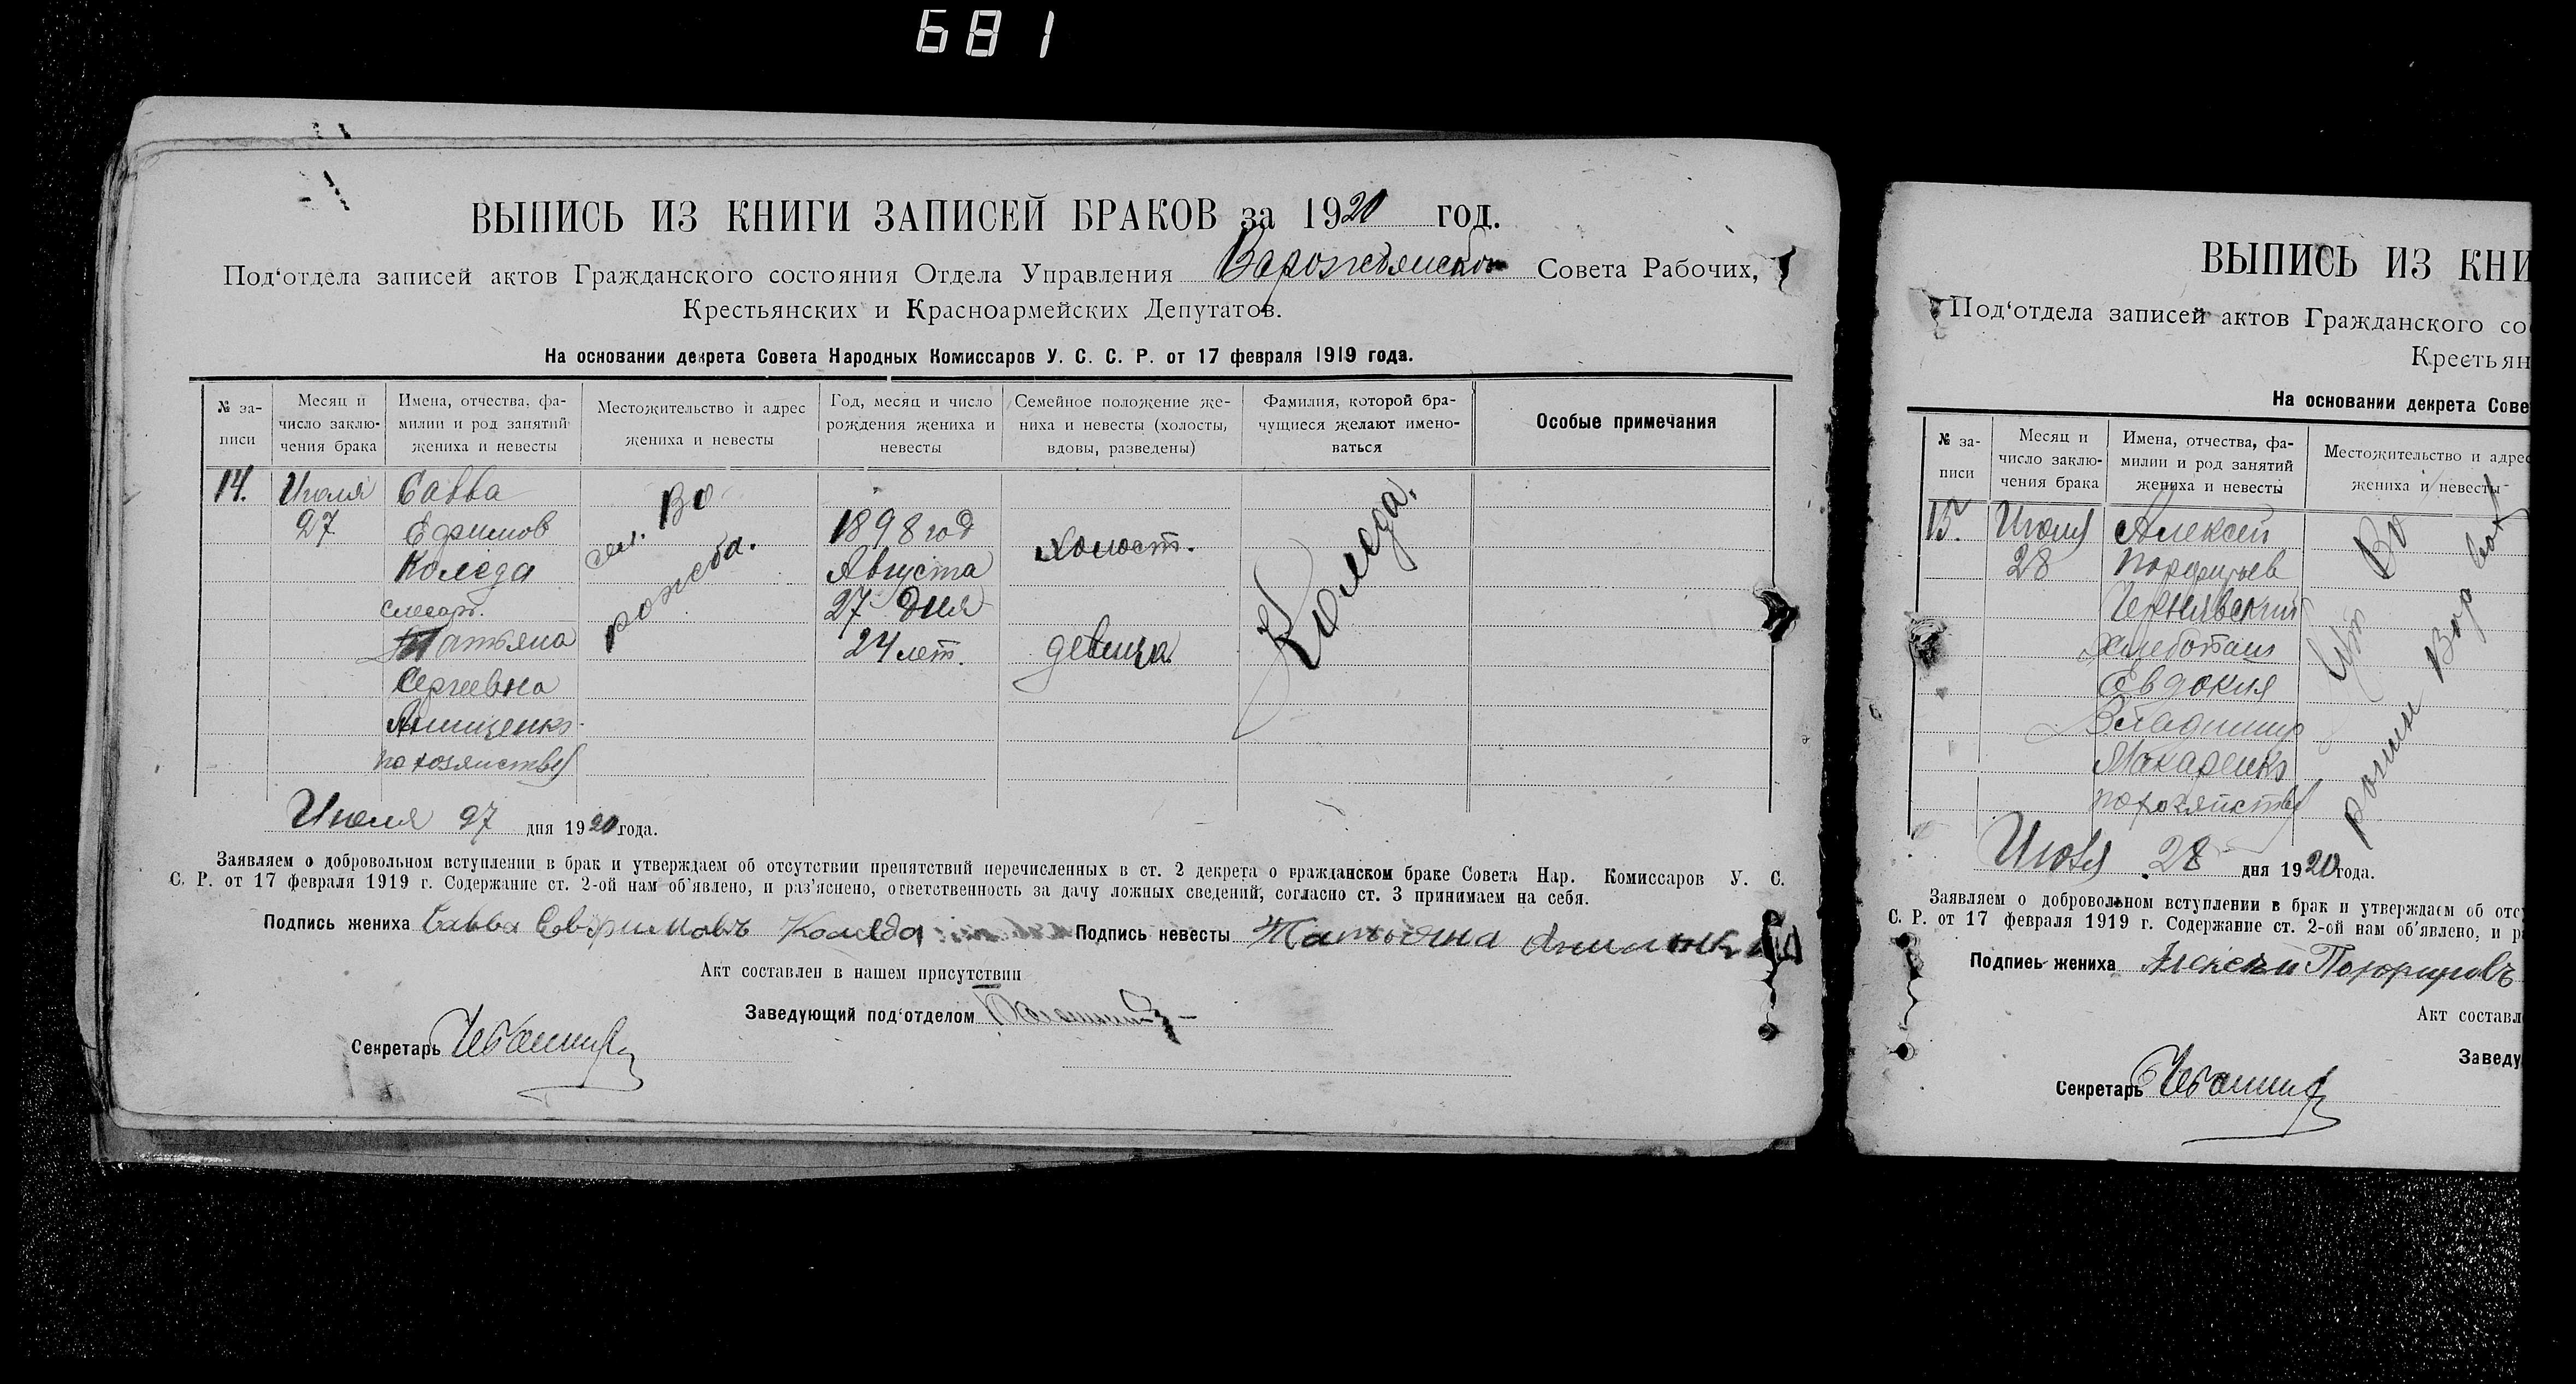 681
ВЫПИСЬ ИЗ КНИГИ ЗАПИСЕЙ БРАКОВ за 1920 год.
Под‘отдела записей актов Гражданского состояния Отдела Управления Совета Рабочих,
Крестьянских и Красноармейских Депутатов.
На основании декрета Совета Народных Комиссаров У. С. С. Р. от 17 февраля 1919 года.
№ за-
писи
Месяц и
число заклю-
чения брака
Имена, отчества, фа-
милии и род занятий
жениха и невесты
Местожительство и адрес
жениха и невесты
Год, месяц и число
рождения жениха и
невесты
Семейное положение же-
ниха и невесты (холосты,
вдовы, разведены)
Фамилия, которой бра-
чущиеся желают имено-
ваться
Особые примечания
14.
Июля
27
Савва
Ефимов
Коледа
слесарь.
Татьяна
Сергеевна
Анищенко
по хозяйству
сел. Во
рожеба.
1898 год
Августа
27 дня
24 лет.
холост.
девица
Коледа.
Июля 27 дня 1920 года.
Заявляем о добровольном вступлении в брак и утверждаем об отсутствии препятствий перечисленных в ст. 2 декрета о гражданском браке Совета Нар. Комиссаров У. С.
С. Р. от 17 февраля 1919 г. Содержание ст. 2-ой нам об‘явлено, и раз‘яснено, ответственность за дачу ложных сведений, согласно ст. 3 принимаем на себя.
Подпись жениха Савва Колєда Подпись невесты Татьяна
Акт составлен в нашем присутствии
Заведующий под‘отделом
Секретарь
ВЫПИСЬ ИЗ КНИ
Под‘отдела записей актов Гражданского со
Крестьян
На основании декрета Сове
№ за-
писи
Месяц и
число заклю-
чения брака
Имена, отчества, фа-
милии и род занятий
жениха и невесты
Местожительство и адрес
жениха и невесты
15.
Июля
28
Алексей
Порфирьев
Чернявский
хлебопаш
Евдокия
Владимир
Макаренко
по хозяйству
Июля 28 дня 1920 года.
Заявляем о добровольном вступлении в брак и утверждаем об отс
С. Р. от 17 февраля 1919 г. Содержание ст. 2-ой нам об‘явлено, и р
Подпись жениха Алексей
Акт составл
Заведу
Секретарь